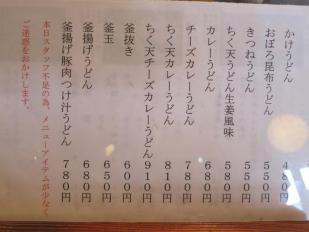 かけうどん 480円
おぼろ昆布うどん 550円
きつねうどん 550円
ちく天うどん生姜風味 580円
カレーうどん 680円
チーズカレーうどん 780円
ちく天カレーうどん 810円
ちく天チーズカレーうどん 910円
釜抜き 600円
釜玉 650円
釜揚げうどん 680円
釜揚げ豚肉つけ汁うどん 780円
本日スタッフ不足の為、メニューアイテムが少なく
ご迷惑をおかけします。